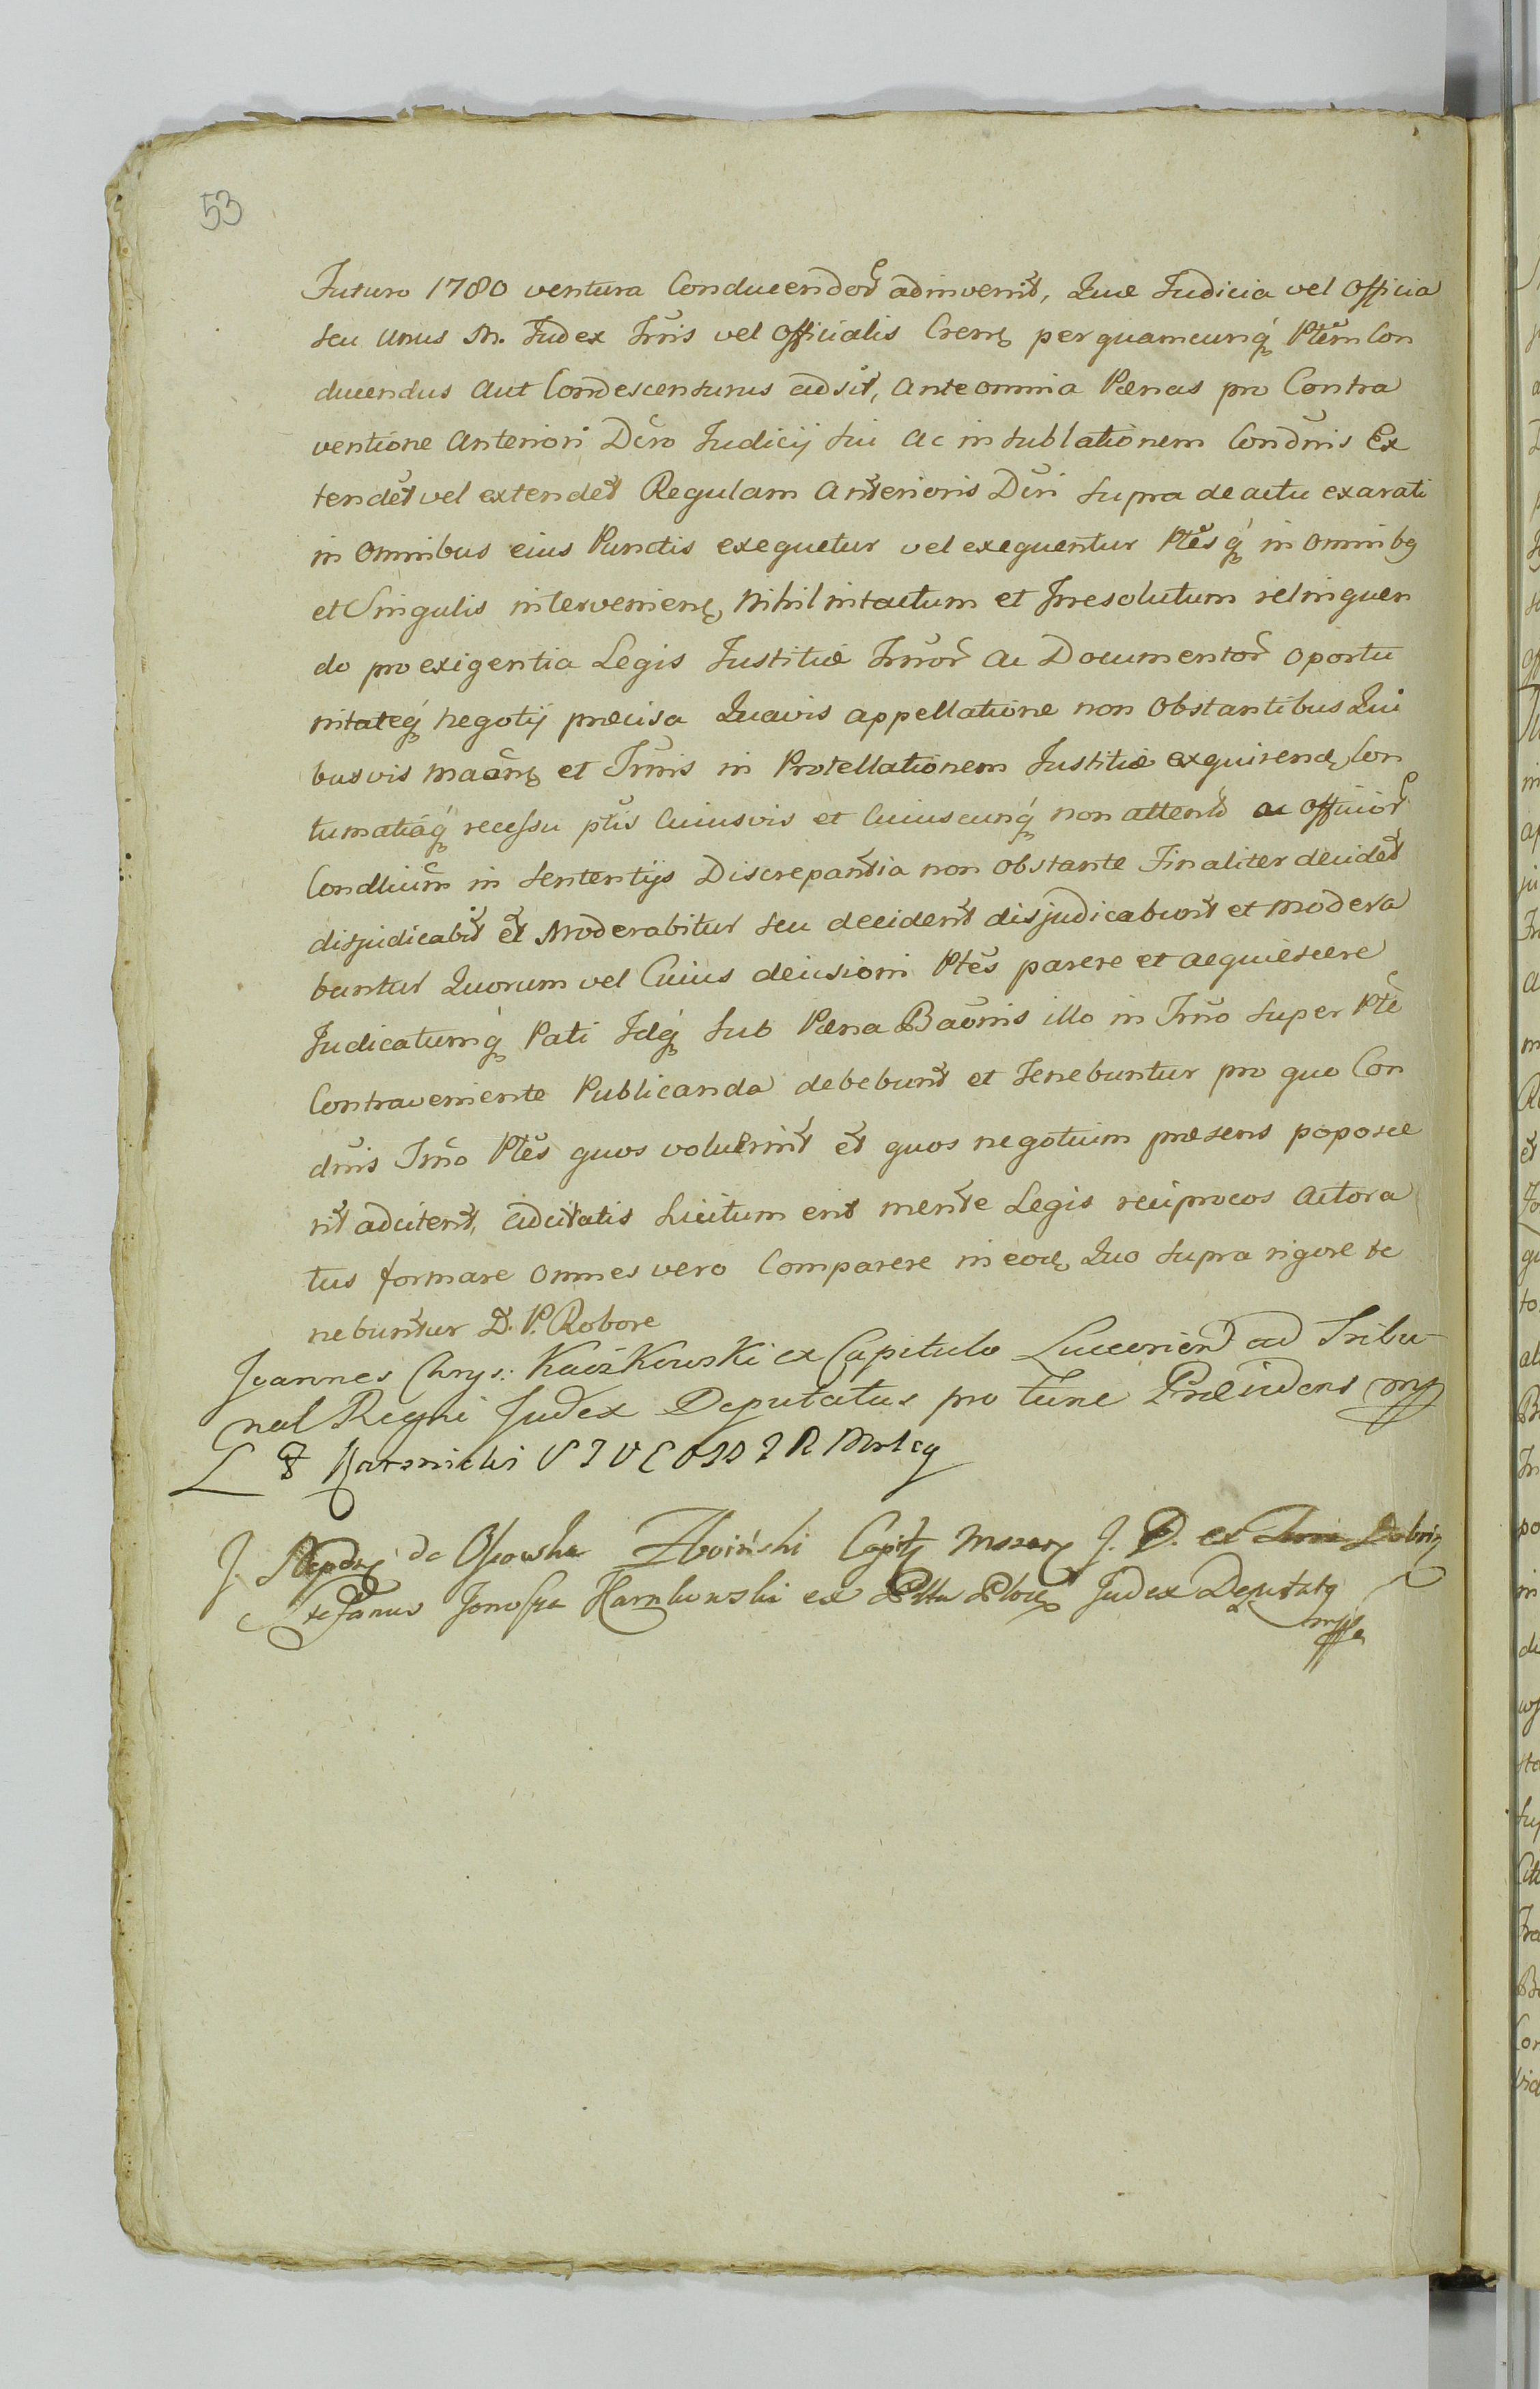 53
Futuro 1780 ventura Conducendor̃ adinvenit, Quæ Judicia vel Officia
seu unus M. Judex Trr̃is vel Officialis Cren̄s per quamcunq́ Ptẽm Con
ducendus aut Condescensurus adsit, ante omnia Pænas pro Contra
ventione Anteriori Dẽro Judicij sui ac in sublationem Condnĩs Ex
tendet vel extendẽt Regulam Anterioris Dẽri supra de actu exarati
in Omnibus eius Punctis exequetur vel exequentur Ptẽsq́ in omnibq
et Singulis intervenien, Nihil intactum et Irresolutum relinquen
do pro exigentia Legis Justitiæ Jurior̃ ac Documentor̃ oportu
nitateq́ negotij præcisa Quavis appellatione non Obstantibus Qui
busvis et Trr̃is in Protellationem Justitiæ exquiren, Con
tumatiaq́ recessu ptĩs Cuiusvis et Cuiuscunq́ non atten ac Officior̃
Condlium̃ in Sententijs Discrepantia non obstante Finaliter decidet
disjudicabit et Moderabitur seu decident disjudicabunt et modera
buntur Quorum vel Cuius decisioni Ptẽs parere et acquiescere
Judicatumq́ Pati Idq́ sub Pæna Bañnis illo in Trr̃o super Ptẽ
Contraveniente Publicanda debebunt et Tenebuntur pro quo Con
dnĩs Trr̃o Ptẽs quos voluerint et quos negotium præsens poposce
rit adcitent, adcitatis Licitum erit mente Legis reciprocos actora
tus formare omnes vero Comparere in eod, Quo supra rigore te
nebuntur D. P. Robore
Joannes Chrys: Kaczkowski ex Capitulo Luceorien ad Tribu-
nal Regni Judex Deputatus pro tunc Præsidens mp
L Karsnicki
J. de Ossowka Zboiński Capit J. D. ex Terra Dobrin
Stefanus Jonosza Karnkowski ex Pttu Ploc Judex Deputatq
mppa